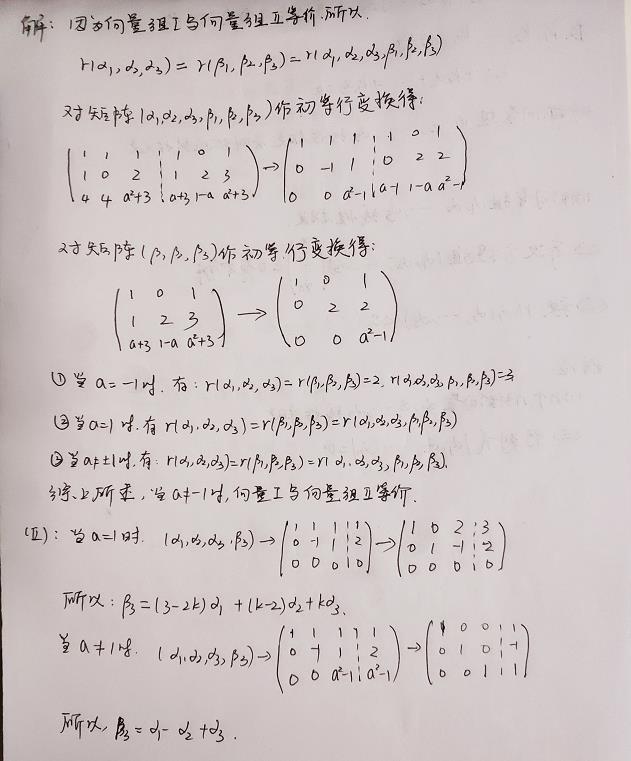 解: 因为向量组I与向量组II等价.所以.
r(α₁,α₂,α₃) = r(β₁,β₂,β₃) = r(α₁,α₂,α₃,β₁,β₂,β₃)
对矩阵(α₁,α₂,α₃,β₁,β₂,β₃)作初等行变换得:
(1 1 1 ┆ 1 0 1; 1 0 2 ┆ 1 2 3; 4 4 a²+3 ┆ a+3 1-a a²+3) → (1 1 1 ┆ 1 0 1; 0 -1 1 ┆ 0 2 2; 0 0 a²-1 ┆ a-1 1-a a²-1)
对矩阵(β₁,β₂,β₃)作初等行变换得:
(1 0 1; 1 2 3; a+3 1-a a²+3) → (1 0 1; 0 2 2; 0 0 a²-1)
① 当 a=-1时. 有: r(α₁,α₂,α₃)=r(β₁,β₂,β₃)=2. r(α₁,α₂,α₃,β₁,β₂,β₃)=3
② 当a=1时.有 r(α₁,α₂,α₃)=r(β₁,β₂,β₃)=r(α₁,α₂,α₃,β₁,β₂,β₃)
③ 当a≠±1时.有: r(α₁,α₂,α₃)=r(β₁,β₂,β₃)=r(α₁,α₂,α₃,β₁,β₂,β₃).
综上所述,当a≠-1时,向量I与向量组II等价.
(II): 当a=1时. (α₁,α₂,α₃,β₃) → (1 1 1 ┆ 1; 0 -1 1 ┆ 2; 0 0 0 ┆ 0) → (1 0 2 ┆ 3; 0 1 -1 ┆ -2; 0 0 0 ┆ 0)
所以: β₃=(3-2k)α₁+(k-2)α₂+kα₃.
当a≠1时. (α₁,α₂,α₃,β₃) → (1 1 1 ┆ 1; 0 -1 1 ┆ 2; 0 0 a²-1 ┆ a²-1) → (1 0 0 ┆ 1; 0 1 0 ┆ -1; 0 0 1 ┆ 1)
所以, β₃=α₁-α₂+α₃.